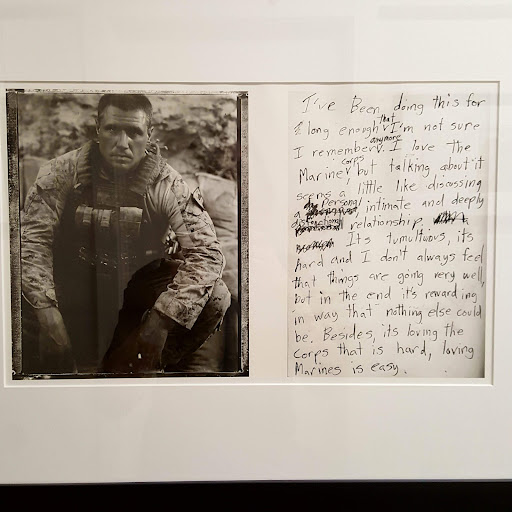 I've Been doing this for
long enough that I'm not sure
I remember anymore. I love the
Marine corps, but talking about it
seems a little like discussing
a personal, intimate and deeply
relationship
Its tumultuous, its
hard and I don't always feel
that things are going very well,
but in the end it's rewarding
in way that nothing else could
be. Besides, its loving the
Corps that is hard, loving
Marines is easy.